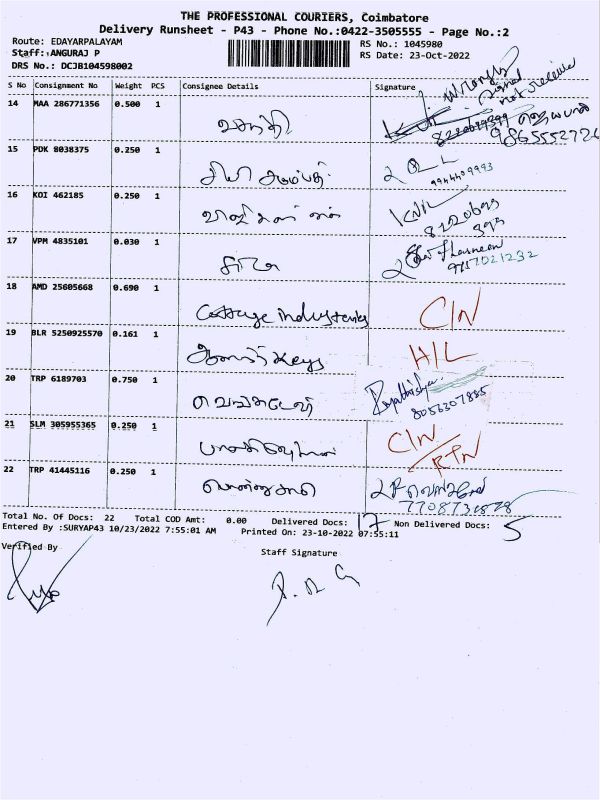 THE PROFESSIONAL COURIERS, Coimbatore
Delivery Runsheet - P43 - Phone No.:0422-3505555 - Page No.:2
Route: EDAYARPALAYAM
RS No.: 1045980
Staff: ANGURAJ P
RS Date: 23-Oct-2022
DRS No.: DCJB104598002
S No Consignment No Weight PCS Consignee Details Signature
wrongly
signed
not receive
14 MAA 286771356 0.500 1 வசந்தி
9865552726
15 PDK 8038375 0.250 1
9944409993
16 KOI 462185 0.250 1
17 VPM 4835101 0.030 1 கீதா
9757021232
18 AMD 25605668 0.690 1 Cottage industeries C/N
19 BLR 5250925570 0.161 1 Keys H/L
20 TRP 6189703 0.750 1 வெங்கடேஷ்
8056307885
21 SLM 305955365 0.250 1 C/N
RTN
22 TRP 41445116 0.250 1 பொன்னுசாமி
7708731878
Total No. Of Docs: 22 Total COD Amt: 0.00 Delivered Docs: 17 Non Delivered Docs: 5
Entered By :SURYAP43 10/23/2022 7:55:01 AM Printed On: 23-10-2022 07:55:11
Verified By
Staff Signature